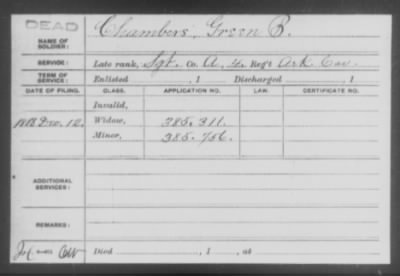 DEAD
NAME OF SOLDIER: Chambers, Green B.
SERVICE: Late rank, Sgt. Co. A, 4 Reg't Ark Cav.
TERM OF SERVICE: Enlisted , 1 Discharged , 1
DATE OF FILING. CLASS. APPLICATION NO. LAW. CERTIFICATE NO.
Invalid,
1888 Dec. 12. Widow, 385.311.
Minor, 385.756.
ADDITIONAL SERVICES:
REMARKS:
Died , 1 , at